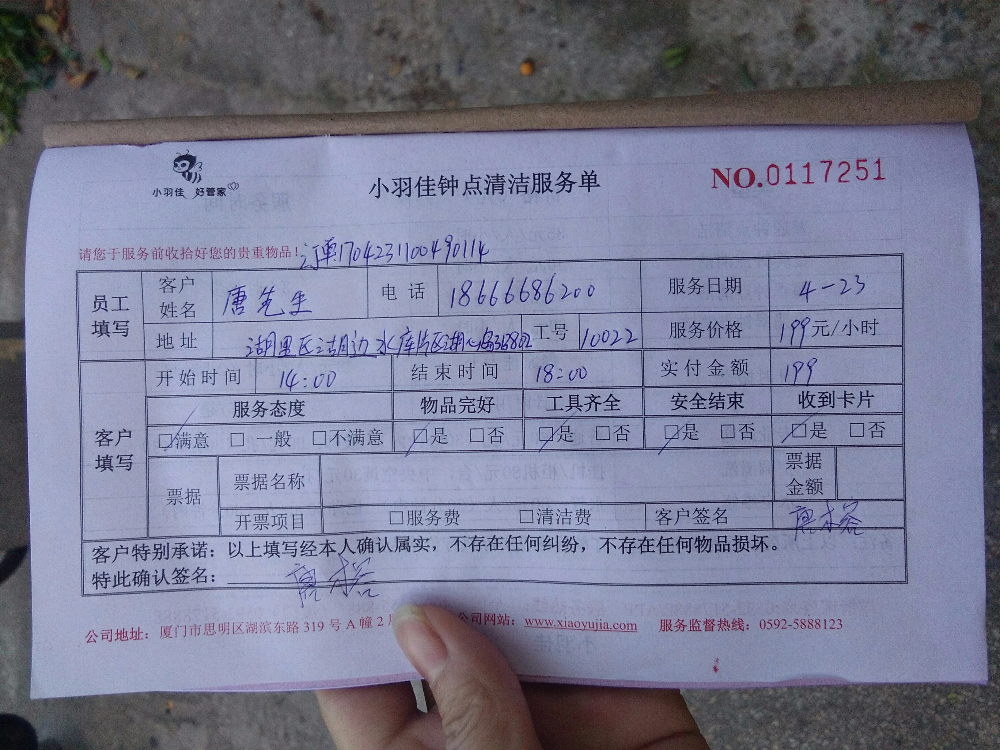 小羽佳 好管家
小羽佳钟点清洁服务单
NO.0117251
请您于服务前收拾好您的贵重物品! 订单170423110049 0114
员工填写 客户姓名 唐先生 电话 18666686200 服务日期 4-23
地址 湖里区湖边水库片区湖心岛 工号 10022 服务价格 199元/小时
客户填写 开始时间 14:00 结束时间 18:00 实付金额 199
服务态度 物品完好 工具齐全 安全结束 收到卡片
☑满意 □一般 □不满意 ☑是 □否 ☑是 □否 ☑是 □否 ☑是 □否
票据 票据名称 票据金额
开票项目 □服务费 □清洁费 客户签名
客户特别承诺：以上填写经本人确认属实，不存在任何纠纷，不存在任何物品损坏。
特此确认签名：
公司地址：厦门市思明区湖滨东路 319 号 A 幢 2 公司网站：www.xiaoyujia.com 服务监督热线：0592-5888123